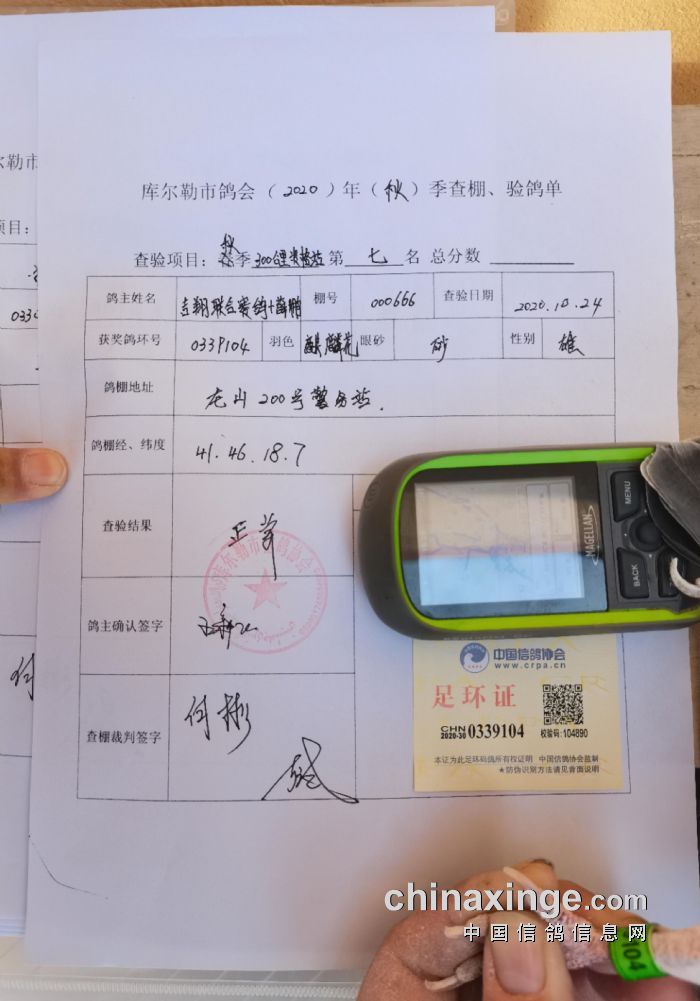 库尔勒市鸽会（2020）年（秋）季查棚、验鸽单
查验项目：秋季300公里 第 七 名 总分数
鸽主姓名 吉翔联合赛鸽+薛鹏 棚号 000666 查验日期 2020.10.24
获奖鸽环号 0339104 羽色 麒麟花 眼砂 砂 性别 雄
鸽棚地址 龙山200号警务站.
鸽棚经、纬度 41.46.18.7
查验结果 正常
鸽主确认签字
查棚裁判签字 何彬
MAGELLAN
MENU
BACK
中国信鸽协会
www.crpa.cn
足环证
CHN
2020-30 0339104 校验码:104890
本证为此足环码鸽所有权证明 中国信鸽协会监制
★防伪识别方法请见背面说明
chinaxinge.com
中国信鸽信息网
104